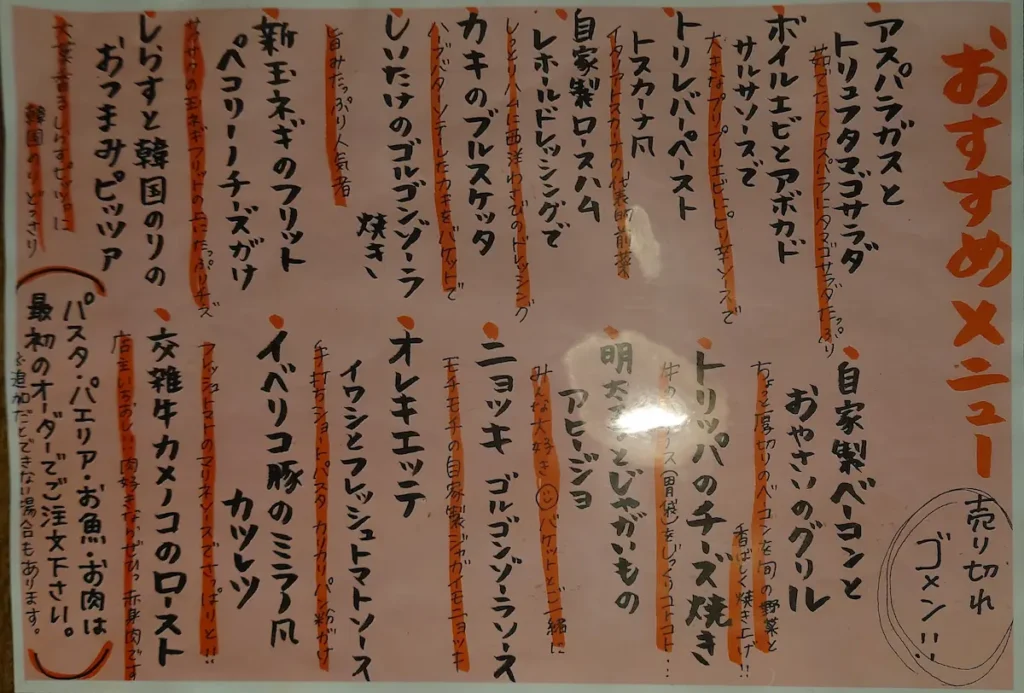 おすすめメニュー
売り切れ
ゴメン!!
アスパラガスと
トリュフタマゴサラダ
茹でたてアスパラにタマゴサラダたっぷり
ボイルエビとアボカド
サルサソースで
大きなプリプリエビにピンチソースで
トリレバーペースト
トスカーナ風
イタリアトスカーナの代表的前菜
自家製ロースハム
レホールドレッシングで
しっとりハムに西洋わさびのドレッシング
カキのブルスケッタ
バターソテーしたカキをバゲットで
しいたけのゴルゴンゾーラ
焼き
旨みたっぷり人気者
新玉ネギのフリット
ペコリーノチーズがけ
玉ネギフリットの上にたっぷりチーズ
しらすと韓国のりの
おつまみピッツァ
しらすピッツァに
韓国のりどっさり
自家製ベーコンと
おやさいのグリル
ちょっと厚切りのベーコンを旬の野菜と
香ばしく焼き上げ!!
トリッパのチーズ焼き
牛の胃袋をじっくりコトコト…
明太子とじゃがいもの
アヒージョ
みんな大好き バゲットとご一緒に
ニョッキ ゴルゴンゾーラソース
モチモチの自家製ジャガイモニョッキ
オレキエッテ
イワシとフレッシュトマトソース
手打ちショートパスタ カリカリパン粉がけ
イベリコ豚のミラノ風
カツレツ
フレッシュトマトのマリネソースでさっぱりと!!
交雑牛カメノコのロースト
店主いちおしい肉好きならぜひっ赤身肉です
パスタ・パエリア・お魚・お肉は
最初のオーダーでご注文下さい。
※追加だとできない場合もあります。